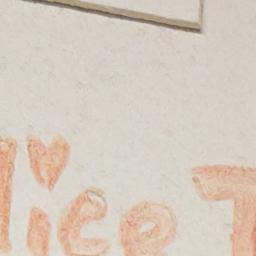 lice T